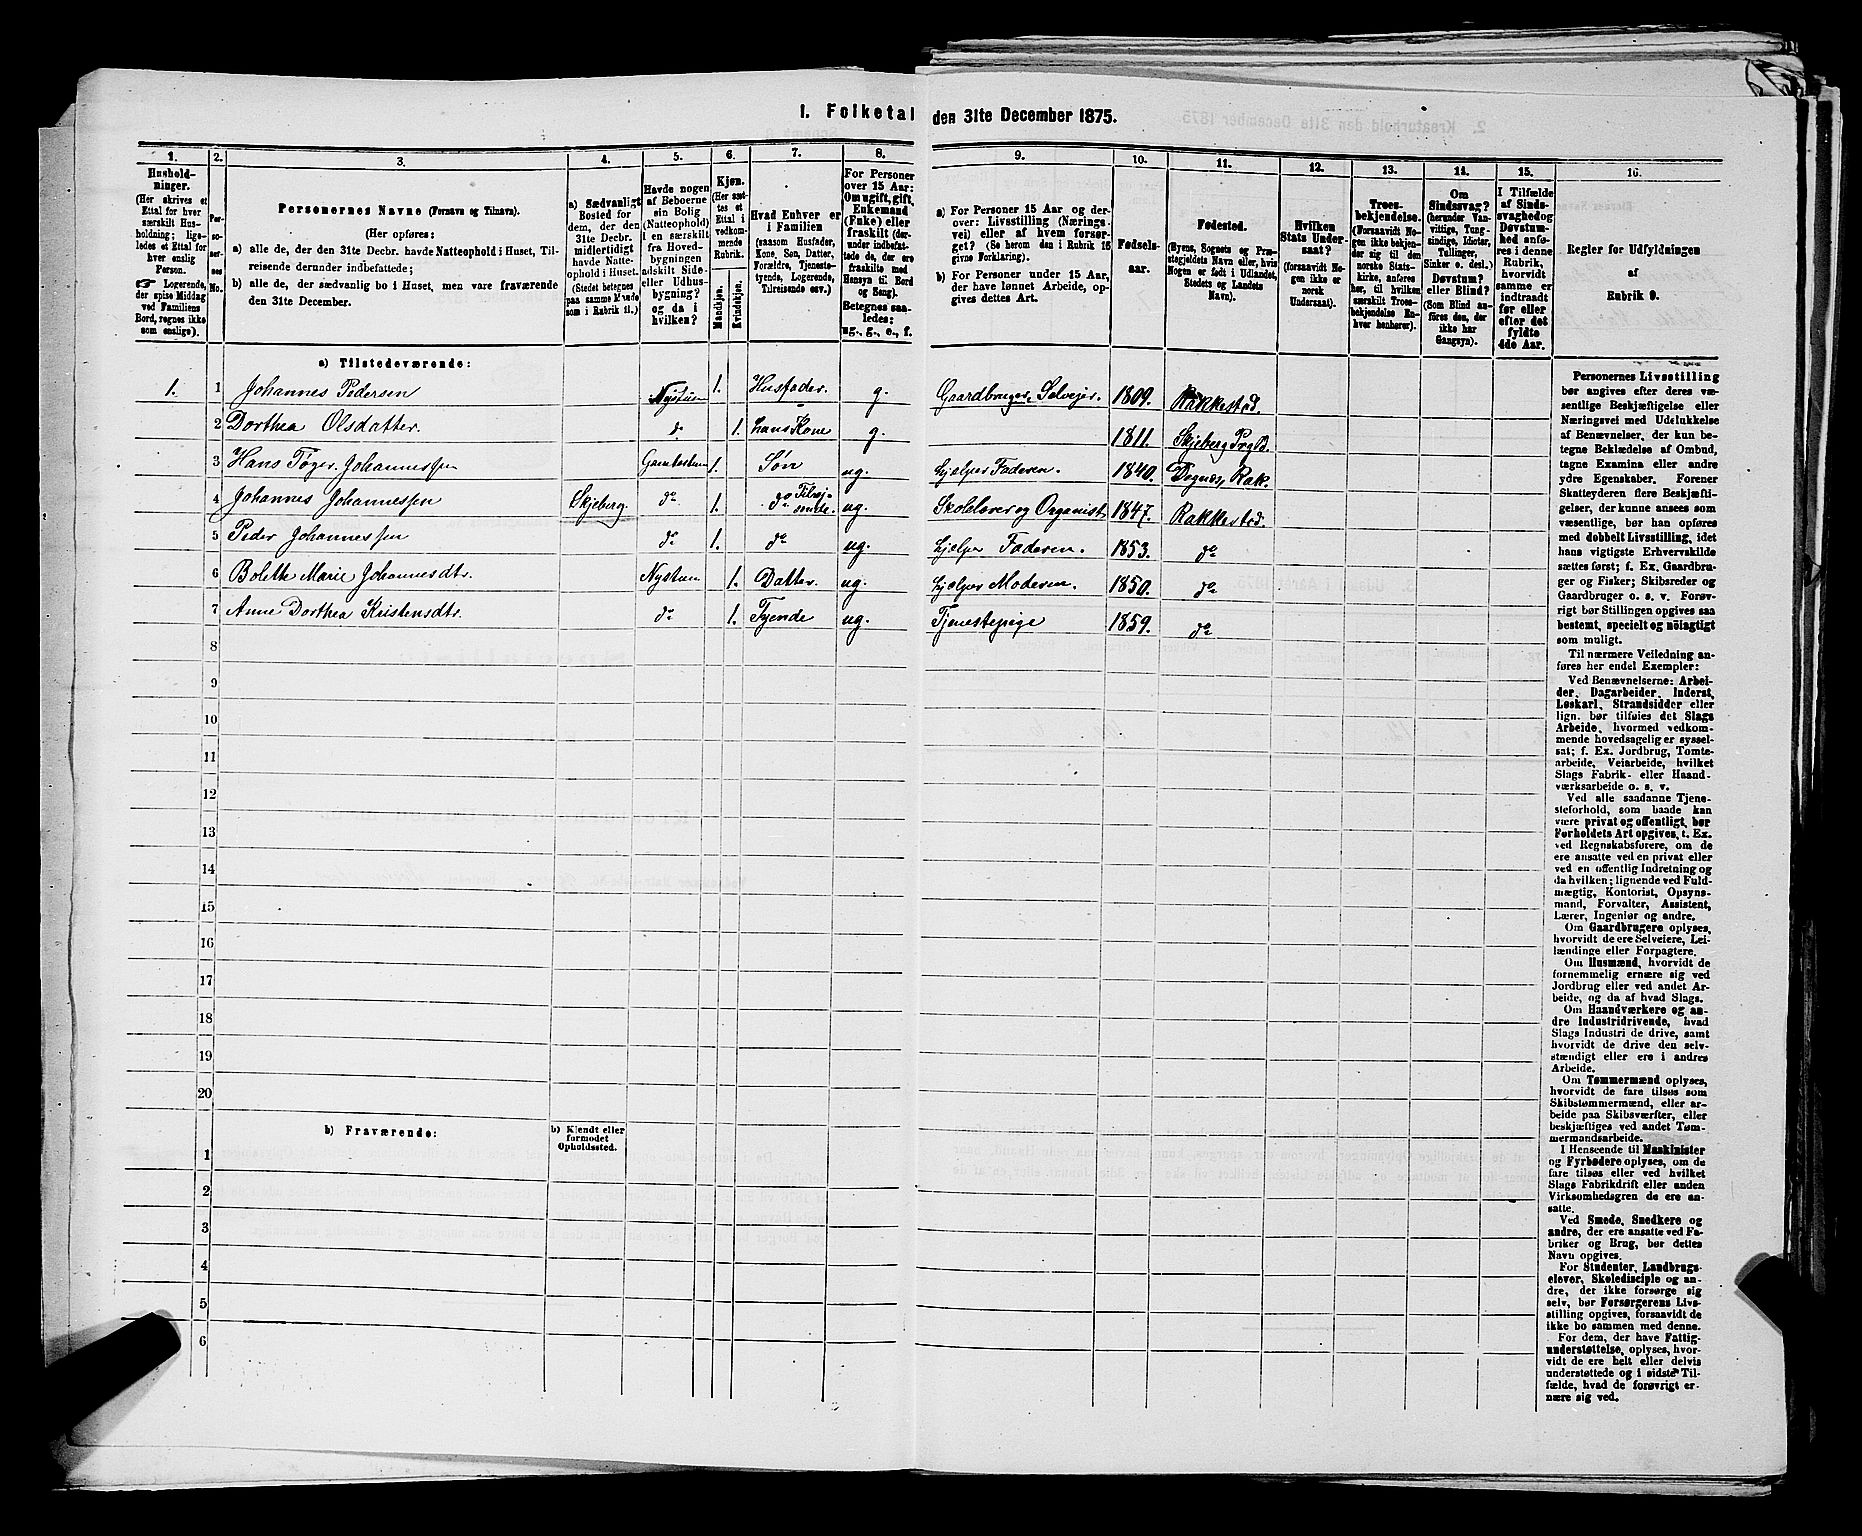 1. Folketal den 31te December 1875.
1. 2. 3. 4. 5. 6. 7. 8. 9. 10. 11. 12. 13. 14. 15. 16.
Hushold-
ninger.
(Her skrives et
Ettal for hver
særskilt Hus-
holdning; lige-
ledes et Ettal for
hver enslig
Person.
☞ Logerende,
der spise Middag
ved Familiens
Bord, regnes ikke
som enslige).
Per-
so-
ner-
nes
No.
Personernes Navne (Fornavn og Tilnavn).
(Her opføres:
a) alle de, der den 31te Decbr. havde Natteophold i Huset, Til-
reisende derunder indbefattede;
b) alle de, der sædvanlig bo i Huset, men vare fraværende
den 31te December.
a) Sædvanligt
Bosted for
dem, der den
31te Decbr.
midlertidigt
havde Natte-
ophold i Huset.
(Stedet betegnes
paa samme Maade
som i Rubrik 11.)
Havde nogen
af Beboerne
sin Bolig
(Natteophold)
i en særskilt
fra Hoved-
bygningen
adskilt Side-
eller Udhus-
bygning?
og da i
hvilken?
Kjøn.
(Her sæt-
tes et
Ettal i
vedkom-
mende
Rubrik.
Mandkjøn.
Kvindekjøn.
Hvad Enhver er
i Familien
(saasom Husfader,
Kone, Søn, Datter,
Forældre, Tjeneste-
tyende, Logerende,
Tilreisende osv.)
For Personer
over 15 Aar:
Om ugift, gift,
Enkemand
(Enke) eller
fraskilt (der-
under indbefat-
tede de, der ere
fraskilte med
Hensyn til Bord
og Seng).
Betegnes saa-
ledes:
ug., g., e., f.
a) For Personer 15 Aar og der-
over: Livsstilling (Nærings-
vei) eller af hvem forsør-
get? (Se herom den i Rubrik 16
givne Forklaring).
b) For Personer under 15 Aar,
der have lønnet Arbeide, op-
gives dettes Art.
Fødsels-
aar.
Fødested.
(Byens, Sognets og Præ-
stegjeldets Navn eller, hvis
Nogen er født i Udlandet,
Stedets og Landets
Navn).
Hvilken
Stats Under-
saat?
(forsaavidt No-
gen ikke er
norsk
Undersaat).
Troes-
bekjendelse.
(Forsaavidt No-
gen ikke bekjen-
der sig til den
norske Stats-
kirke, anføres
her, til hvilken
særskilt Troes-
bekjendelse En-
hver henhører).
Om
Sindssvag?
(herunder Van-
vittige, Tung-
sindige, Idioter,
Tullinger,
Sinker o. desl.)
Døvstum?
eller Blind?
(Som Blind an-
føres den, der
ikke har
Gangsyn).
I Tilfælde
af Sinds-
svaghed og
Døvstum-
hed anfø-
res i denne
Rubrik,
hvorvidt
samme er
indtraadt
før eller
efter det
fyldte
4de Aar.
Regler for Udfyldningen
af
Rubrik 9.
a) Tilstedeværende:
1. 1 Johannes Pedersen Nystuen 1. Husfader. g. Gaardbruger, Selveier. 1809. Rakkestad.
2 Dorthea Olsdatter. do 1. hans Kone g. 1811. Skjeberg Prgld.
3 Hans Tøger Johannessen 1. Søn ug. hjelper Faderen. 1840. Degnes, Rak.
4 Johannes Johannessen Skjeberg. do 1. do ug. Skolelærer og Organist 1847. Rakkestad.
5 Peder Johannessen do 1. do ug. hjelper Faderen. 1853. do
6 Bolette Marie Johannesdtr. Nystuen 1. Datter. ug. hjelper Moderen. 1850. do
7 Anne Dorthea Kristensdtr. do 1. Tyende ug. Tjenestepige 1859. do
8
9
10
11
12
13
14
15
16
17
18
19
20
b) Fraværende:
b) Kjendt eller
formodet
Opholdssted.
1
2
3
4
5
6
Personernes Livsstilling
bør angives efter deres væ-
sentlige Beskjæftigelse eller
Næringsvei med Udelukkelse
af Benævnelser, der kun be-
tegne Beklædelse af Ombud,
tagne Examina eller andre
ydre Egenskaber. Forener
Skatteyderen flere Beskjæfti-
gelser, der kunne ansees som
væsentlige, bør han opføres
med dobbelt Livsstilling, idet
hans vigtigste Erhvervskilde
sættes først; f. Ex. Gaardbru-
ger og Fisker; Skibsreder og
Gaardbruger o. s. v. Forøv-
rigt bør Stillingen opgives saa
bestemt, specielt og nöiagtigt
som muligt.
Til nærmere Veiledning an-
føres her endel Exempler:
Ved Benævnelserne: Arbei-
der, Dagarbeider, Inderst,
Løskarl, Strandsidder eller
lign. bør tilføies det Slags
Arbeide, hvormed vedkom-
mende hovedsagelig er syssel-
sat; f. Ex. Jordbrug, Tomte-
arbeide, Veiarbeide, hvilket
Slags Fabrik- eller Haand-
værksarbeide o. s. v.
Ved alle saadanne Tjene-
steforhold, som baade kan
være privat og offentligt, bør
Forholdets Art opgives, t. Ex.
ved Regnskabsførere, om de
ere ansatte ved en privat eller
ved en offentlig Indretning og
da hvilken; lignende ved Fuld-
mægtig, Kontorist, Opsyns-
mand, Forvalter, Assistent,
Lærer, Ingeniør og andre.
Om Gaardbrugere oplyses,
hvorvidt de ere Selveiere, Lei-
lændinge eller Forpagtere.
Om Husmænd, hvorvidt de
fornemmelig ernære sig ved
Jordbrug eller ved andet Ar-
beide, og da af hvad Slags.
Om Haandværkere og an-
dre Industridrivende, hvad
Slags Industri de drive, samt
hvorvidt de drive den selv-
stændigt eller ere i andres
Arbeide.
Om Tømmermænd oplyses,
hvorvidt de fare tilsøs som
Skibstømmermænd, eller ar-
beide paa Skibsværfter, eller
beskjæftiges ved andet Tøm-
mermandsarbeide.
I Henseende til Maskinister
og Fyrbødere oplyses, om de
fare tilsøs eller ved hvilket
Slags Fabrikdrift eller anden
Virksomhedsgren de ere an-
satte.
Ved Smede, Snedkere og
andre, der ere ansatte ved Fa-
briker og Brug, bør dettes
Navn opgives.
For Studenter, Landbrugs-
elever, Skoledisciple og an-
dre, der ikke forsørge sig
selv, bør Forsørgerens Livs-
stilling opgives, forsaavidt de
ikke bo sammen med denne.
For dem, der have Fattig-
understøttelse, oplyses, hvor-
vidt de ere helt eller delvis
understøttede og i sidste Til-
fælde, hvad de forøvrigt er-
nære sig ved.